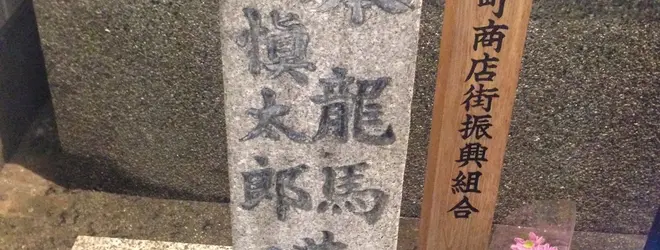 本龍馬
慎太郎
町商店街振興組合